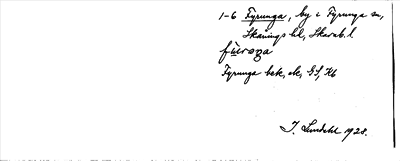 1-6 Fyrunga, by i Fyrunga sn,
Skånings hd, Skarab. l.
Fyrunga bek, ek, GS, Kb
I. Lundahl 1928.